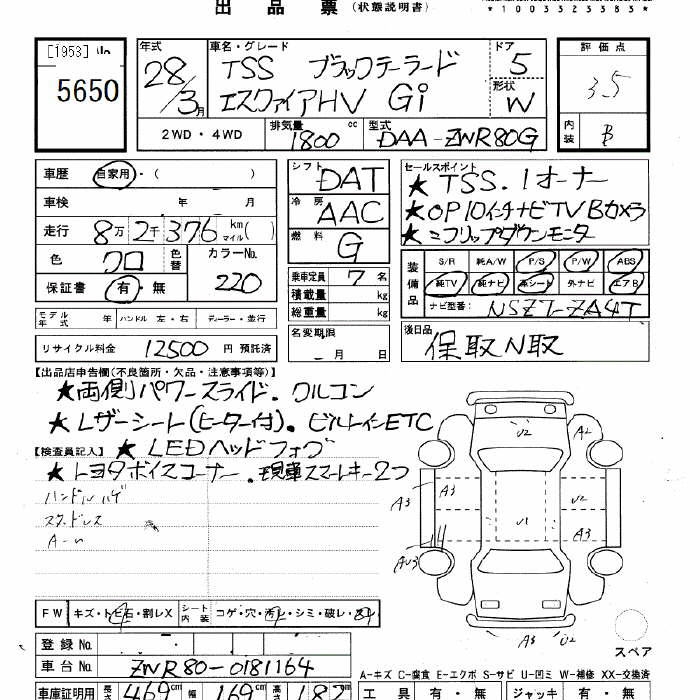 出品票(状態説明書)
*1003323383*
[1953]
5650
年式
28/3月
車名・グレード
TSS ブラックテーラード
エスクァイアHV Gi
ドア
5
形状
W
評価点
3.5
内装
B
2WD・4WD
排気量
1800cc
型式
DAA-ZWR80G
車歴
自家用・( )
車検 年 月
走行 8万2千376 km マイル( )
色 クロ 色替 カラーNo. 220
保証書 有・無
モデル年式 年 ハンドル 左・右 ディーラー・並行
リサイクル料金 12500円 預託済
シフト DAT
冷房 AAC
燃料 G
乗車定員 7名
積載量 kg
総重量 kg
名変期限 月 日
セールスポイント
★TSS.1オーナー
★OP10インチナビTVBカメラ
★フリップダウンモニタ
装備品
S/R 純A/W P/S P/W ABS
純TV 純ナビ 革シート 外ナビ エアB
ナビ型番: NSZT-ZA4T
後日品
保取N取
【出品店申告欄(不良箇所・欠品・注意事項等)】
★両側パワースライド.クルコン
★レザーシート(ヒーター付)。ビルトインETC
【検査員記入】★LEDヘッドフォグ
★トヨタボイスコーナー.現車スマートキー2つ
ハンドルハゲ
スタッドレス
U2
A2
A3
A3
U2
U1
A3
AU3
A3
U2
スペア
FW キズ・トビ石・割レX シート内装 コゲ・穴・汚レ・シミ・破レ・スレ
登録No.
車台No. ZWR80-0181164
A-キズ C-腐食 E-エクボ S-サビ U-凹ミ W-補修 XX-交換済
車庫証明用 長さ 469cm 幅 169cm 高さ 182cm
工具 有・無 ジャッキ 有・無